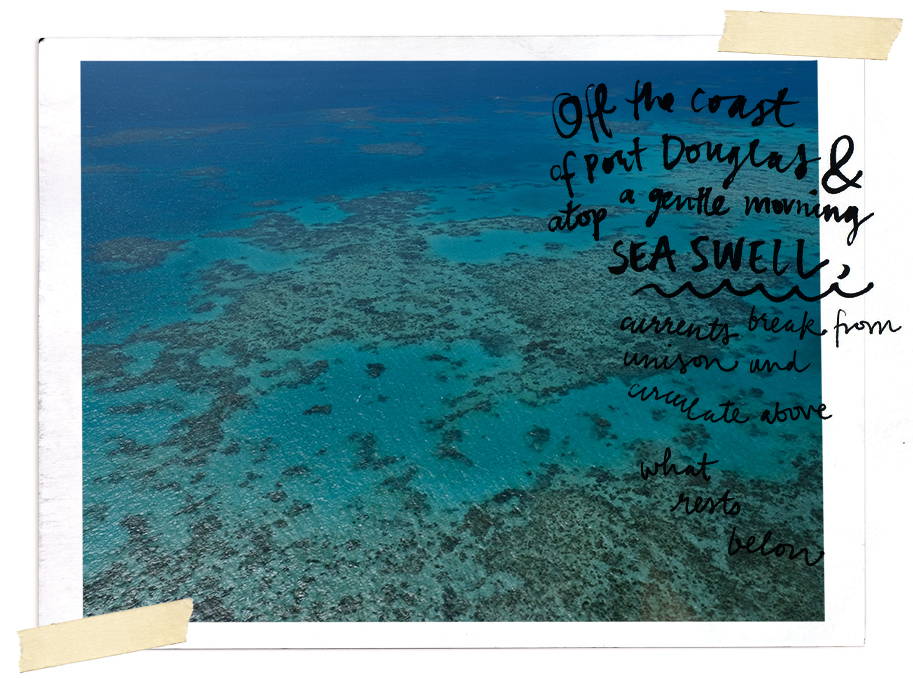 Off the coast
of Port Douglas &
atop a gentle morning
SEA SWELL,
currents break from
unison and
circulate above
what
rests
below